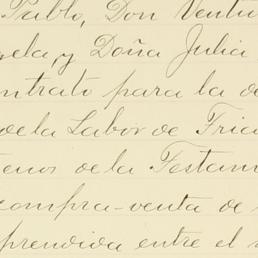 Pablo, Don Ventu
ela, y Doña Julia
ntrato para la de
de la Labor de Tric
enos de la Testam
compra-venta de
prendida entre el